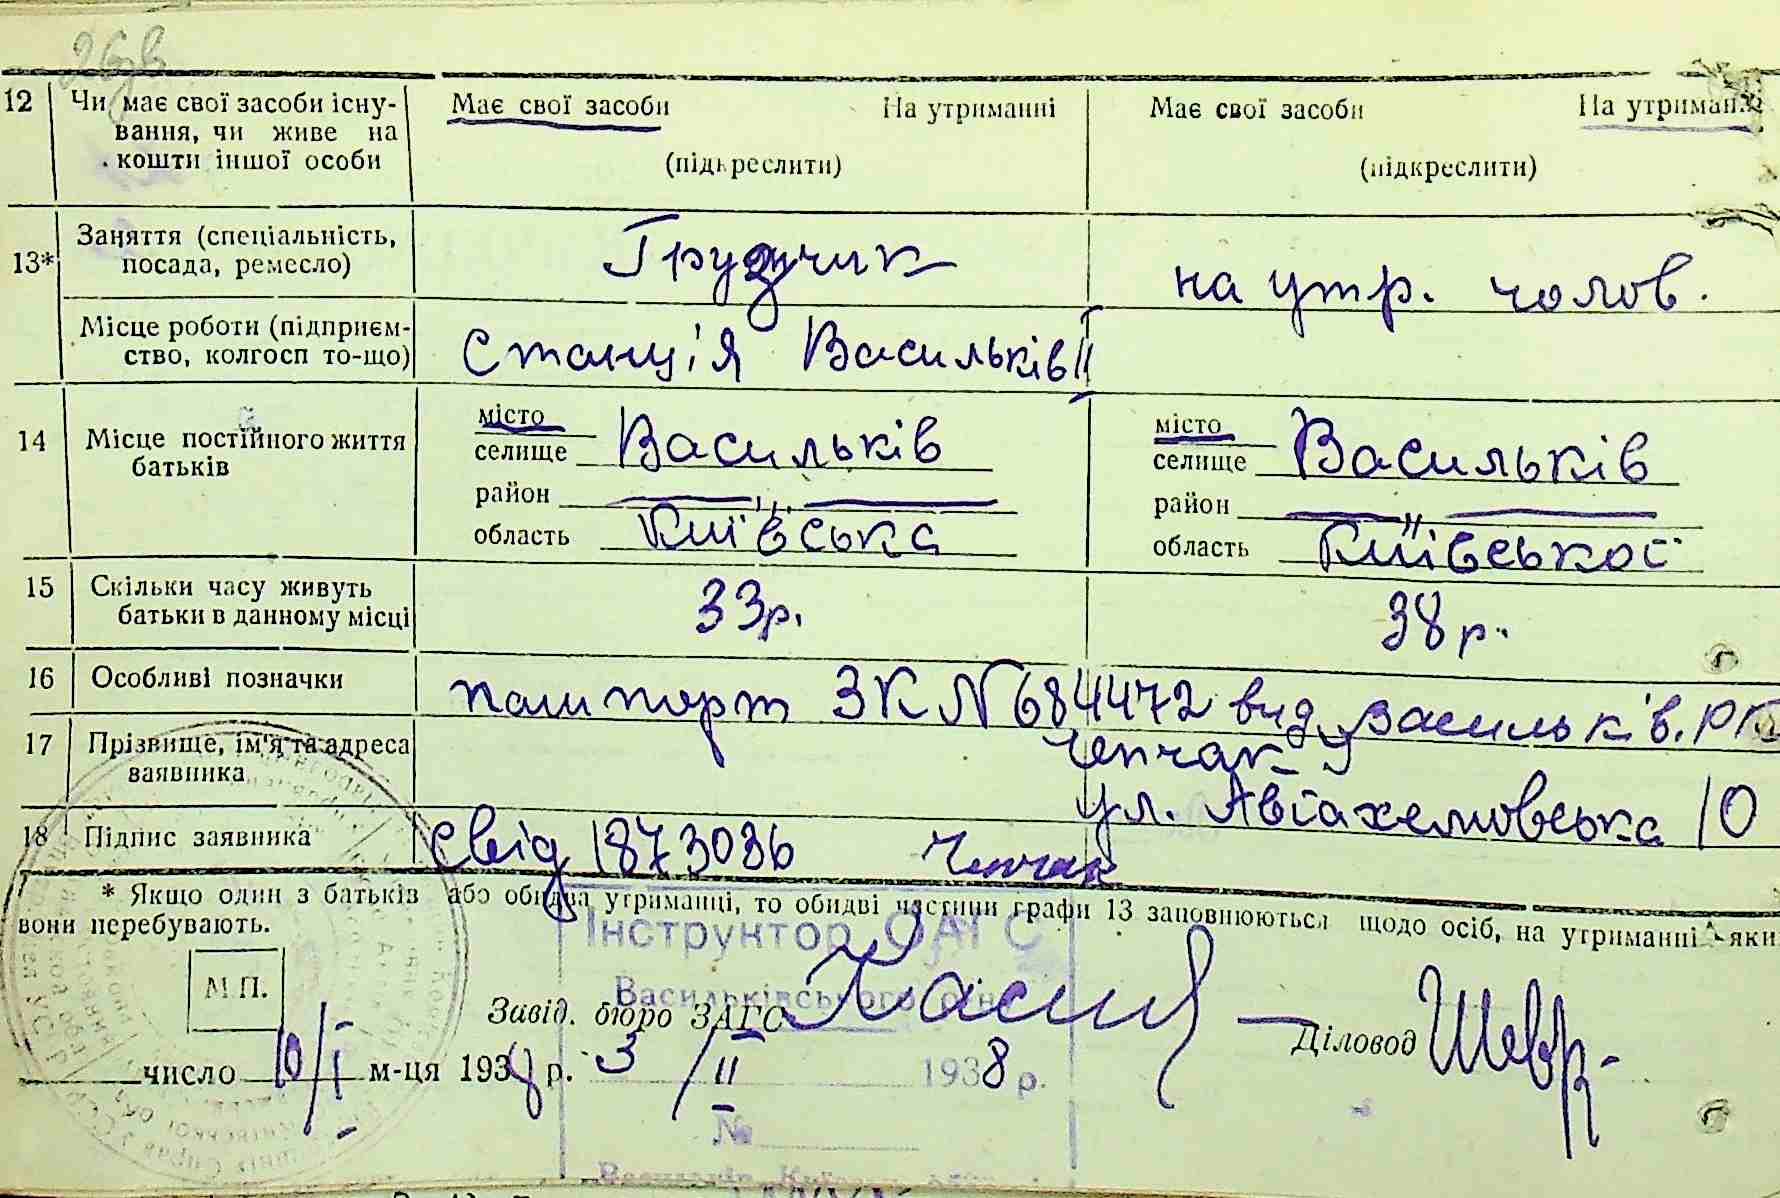 26зв
12 Чи має свої засоби існу- Має свої засоби На утриманні Має свої засоби На утриман
вання, чи живе на
кошти іншої особи (підкреслити) (підкреслити)
13* Заняття (спеціальність, Грузчик на утр. чолов.
посада, ремесло)
Місце роботи (підприєм- Станція Васильків II
ство, колгосп то-що)
14 Місце постійного життя місто Васильків місто Васильків
батьків селище селище
район —„— район —„—
область Київська область Київської
15 Скільки часу живуть 33р. 38р.
батьки в данному місці
16 Особливі позначки пашпорт ЗК N 684472 вид Васильків.
17 Прізвище, ім'я та адреса Чепчак
заявника ул. Авіахемовська 10
18 Підпис заявника свід 1873036 Чепчак
* Якщо один з батьків або обидва утриманці, то обидві частини графи 13 заповнюються щодо осіб, на утриманні яки
вони перебувають.
Інструктор ОАГС
Васильківського
М.П. Завід. бюро ЗАГС Діловод Шевр.
число 10/I м-ця 1938 р. 3/II 1938 р.
№